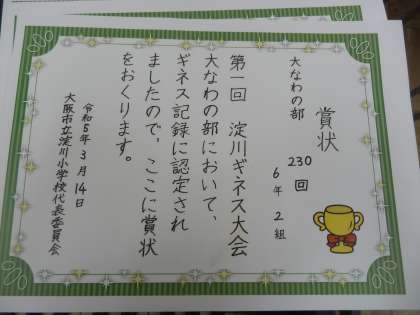 賞状
大なわの部
230回
6年2組
第一回 淀川ギネス大会
大なわの部において、
ギネス記録に認定され
ましたので、ここに賞状
をおくります。
令和5年3月14日
大阪市立淀川小学校代表委員会